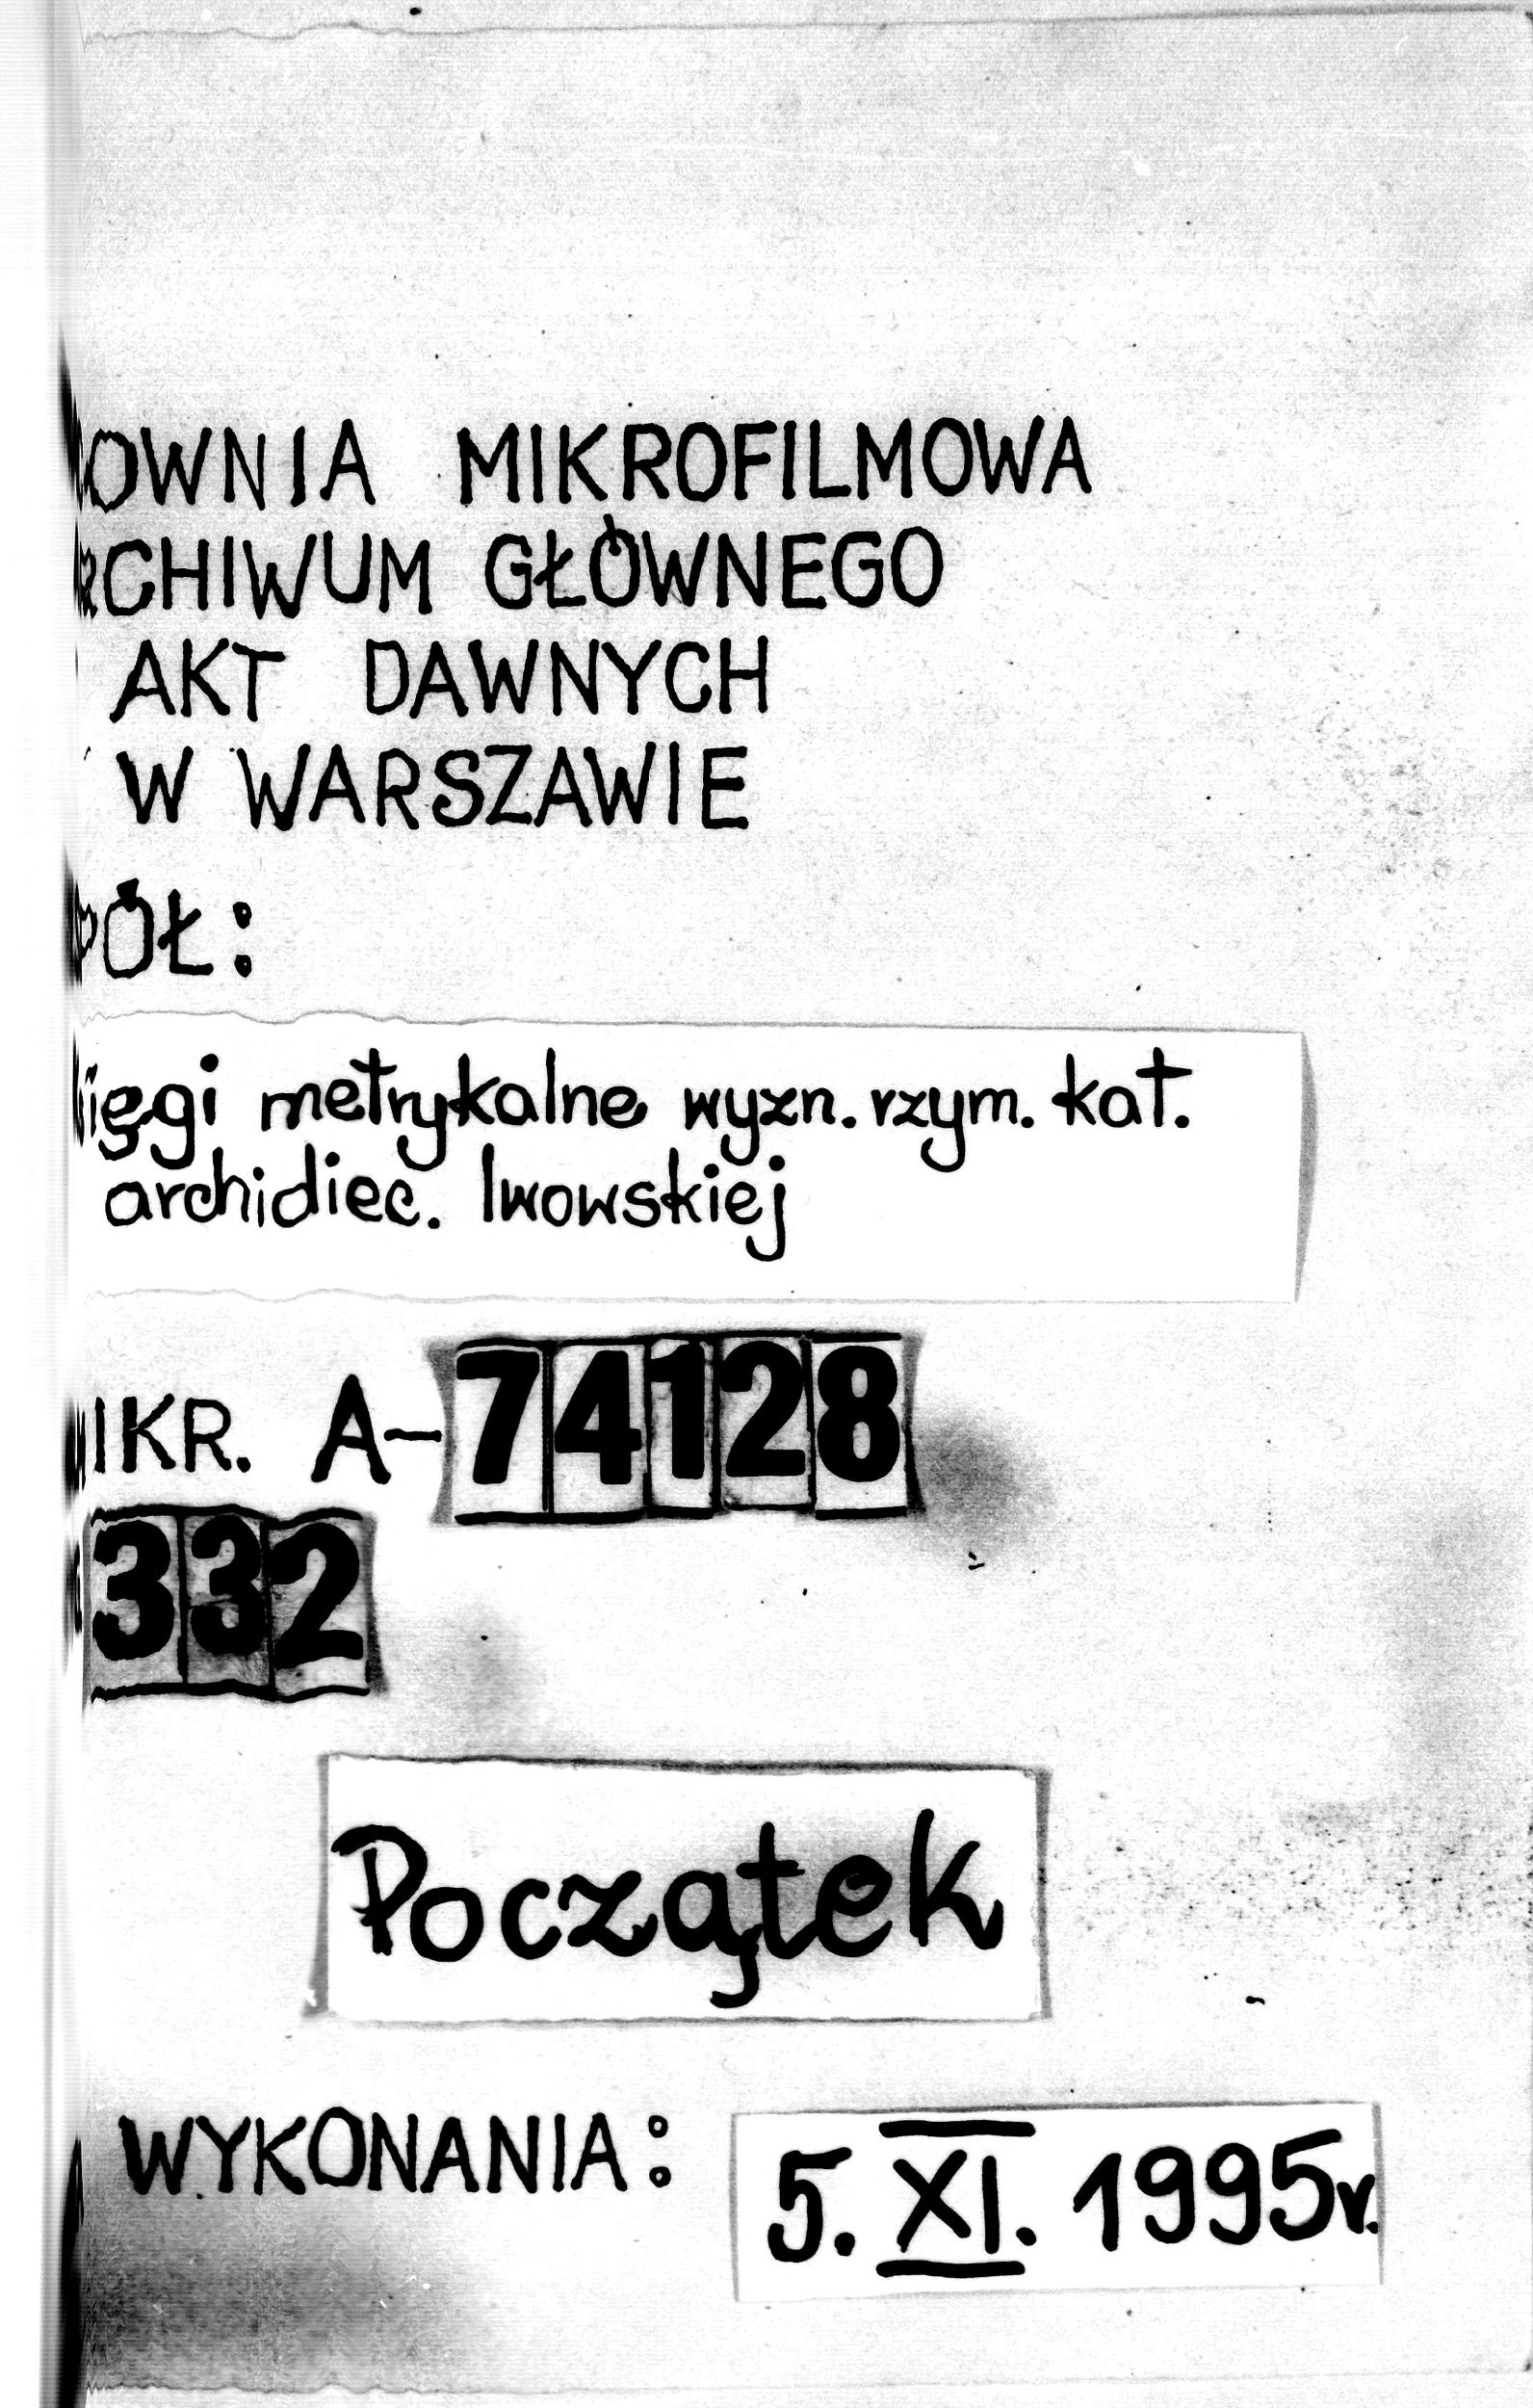 OWNIA MIKROFILMOWA
RCHIWUM GŁÓWNEGO
AKT DAWNYCH
W WARSZAWIE
PÓŁ:
ięgi metrykalne wyzn. rzym. kat.
archidiec. lwowskiej
IKR. A-74128
332
Początek
WYKONANIA: 5. XI. 1995r.